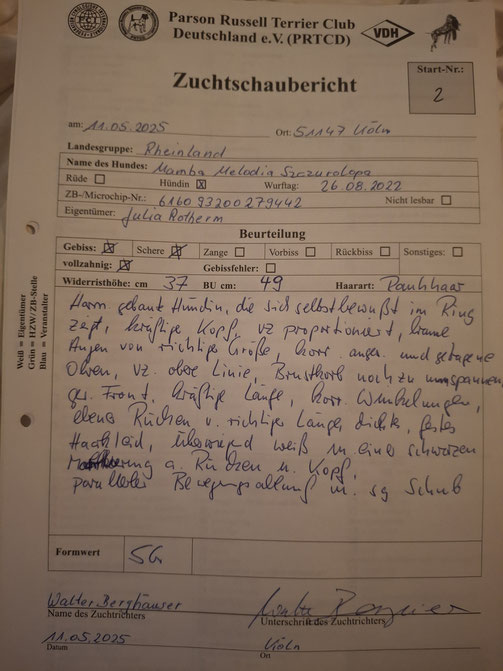 Parson Russell Terrier Club
Deutschland e.V. (PRTCD)
VDH
Zuchtschaubericht
Start-Nr.:
2
am: 11.05.2025 Ort: 51147 Köln
Landesgruppe: Rheinland
Name des Hundes: Mamba Melodia Szczurolapa
Rüde Hündin X Wurftag: 26.08.2022
ZB-/Microchip-Nr.: 616093200279442 Nicht lesbar
Eigentümer: Julia Rotherm
Beurteilung
Gebiss: X Schere X Zange Vorbiss Rückbiss Sonstiges:
vollzahnig: X Gebissfehler:
Widerristhöhe: cm 37 BU cm: 49 Haarart: Rauhhaar
Weiß = Eigentümer
Grün = HZW/ZB-Stelle
Blau = Veranstalter
Harm. gebaute Hündin, die sich selbstbewußt im Ring
zeigt, kräftige Kopf, vz proportioniert, braune
Augen von richtiger Größe, korr. anges. und getragene
Ohren, vz. obere Linie, Brustkorb noch zu umspannen,
ger. Front, kräftige Läufe, korr. Winkelungen,
ebener Rücken v. richtiger Länge, dichtes, festes
Haarkleid, überwiegend weiß m einer schwarzen
a. Rücken u. Kopf,
paralleler m. sg Schub
Formwert SG
Walter Berghäuser
Name des Zuchtrichters Unterschrift des Zuchtrichters
11.05.2025 Köln
Datum Ort